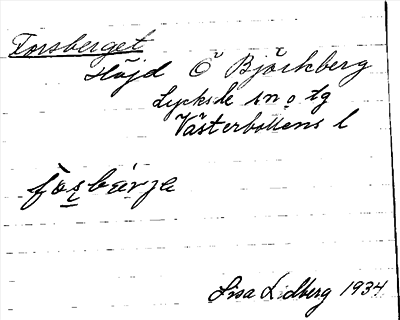 Forsberget
Höjd Ö Björkberg
Lycksele sn o tg
Västerbottens l
Lisa Lidberg 1934